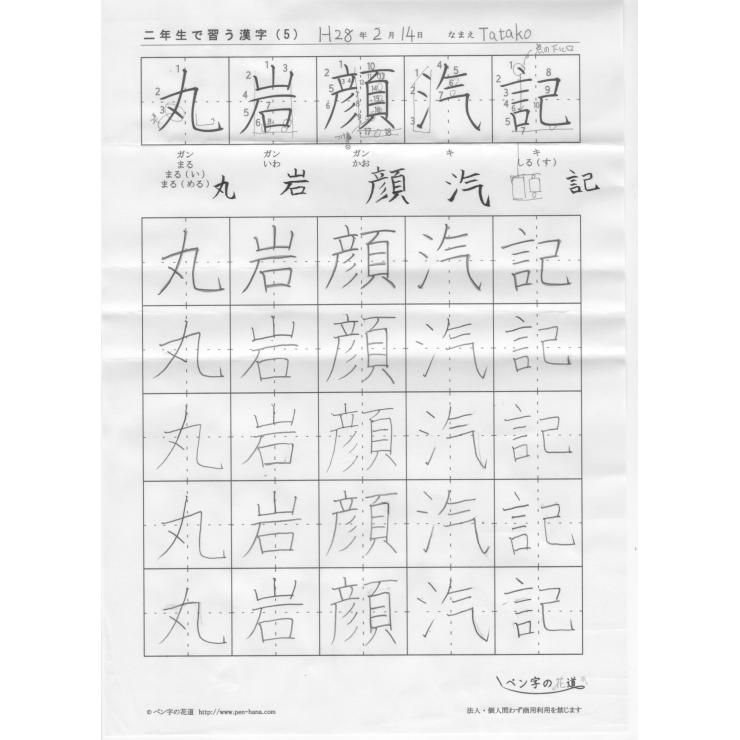 二年生で習う漢字(5) H28年2月14日 なまえ Tatako
丸 岩 顔 汽 記
ガン ガン ガン キ キ
まる いわ かお しる(す)
まる(い)
まる(める)
丸 岩 顔 汽 記
丸 岩 顔 汽 記
丸 岩 顔 汽 記
丸 岩 顔 汽 記
丸 岩 顔 汽 記
丸 岩 顔 汽 記
ペン字の花道
© ペン字の花道 http://www.pen-hana.com 法人・個人問わず商用利用を禁じます